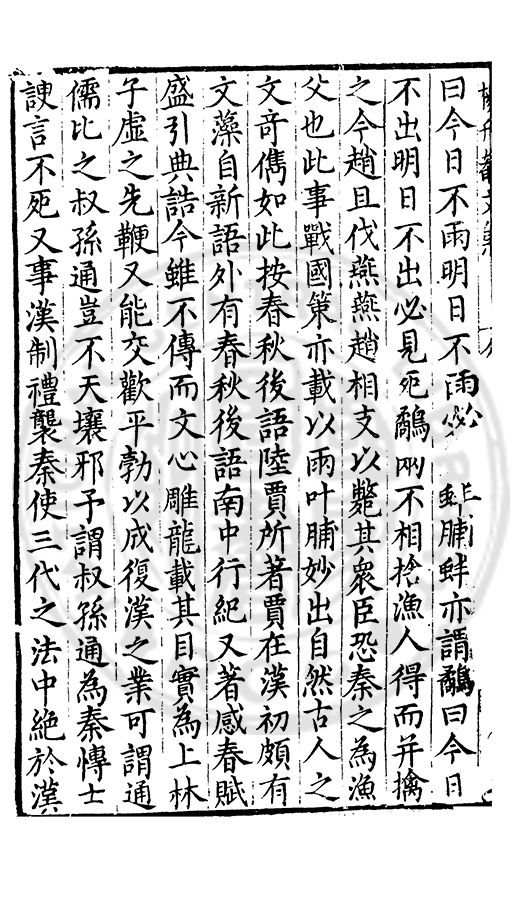 曰今日不雨明日不雨必蚌脯蚌亦謂鷸曰今日
不出明日不出必見死鷸兩不相捨漁人得而并擒
之今趙且伐燕燕趙相支以斃其衆臣恐秦之為漁
父也此事戰國策亦載以雨叶脯妙出自然古人之
文竒儁如此按春秋後語陸賈所著賈在漢初頗有
文藻自新語外有春秋後語南中行紀又著感春賦
盛引典誥今雖不傳而文心雕龍載其目實為上林
子虛之先鞭又能交歡平勃以成復漢之業可謂通
儒比之叔孫通豈不天壤邪予謂叔孫通為秦愽士
諛言不死又事漢制禮襲秦使三代之法中絶於漢